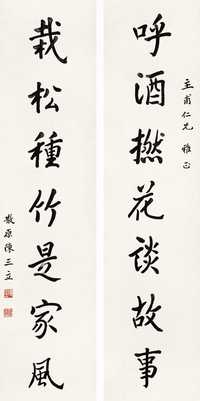 呼酒撚花談故事
圭甫仁兄 雅正
栽松種竹是家風
散原陳三立